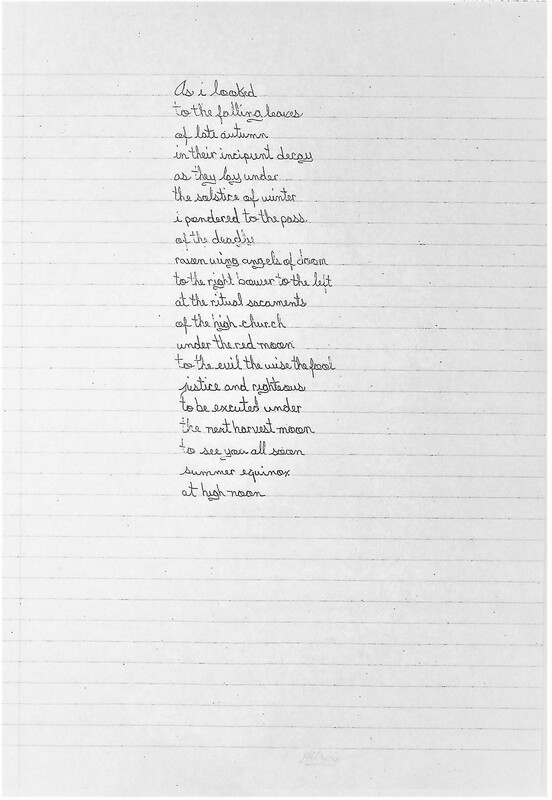 As i looked
to the falling leaves
of late autumn
in their incipient decay
as they lay under
the solstice of winter
i pondered to the pass
of the deadly
raven wing angels of doom
to the right bower to the left
at the ritual sacaments
of the high church
under the red moon
to the evil the wise the fool
justice and righteous
to be excuted under
the next harvest moon
to see you all soon
summer equinox
at high noon